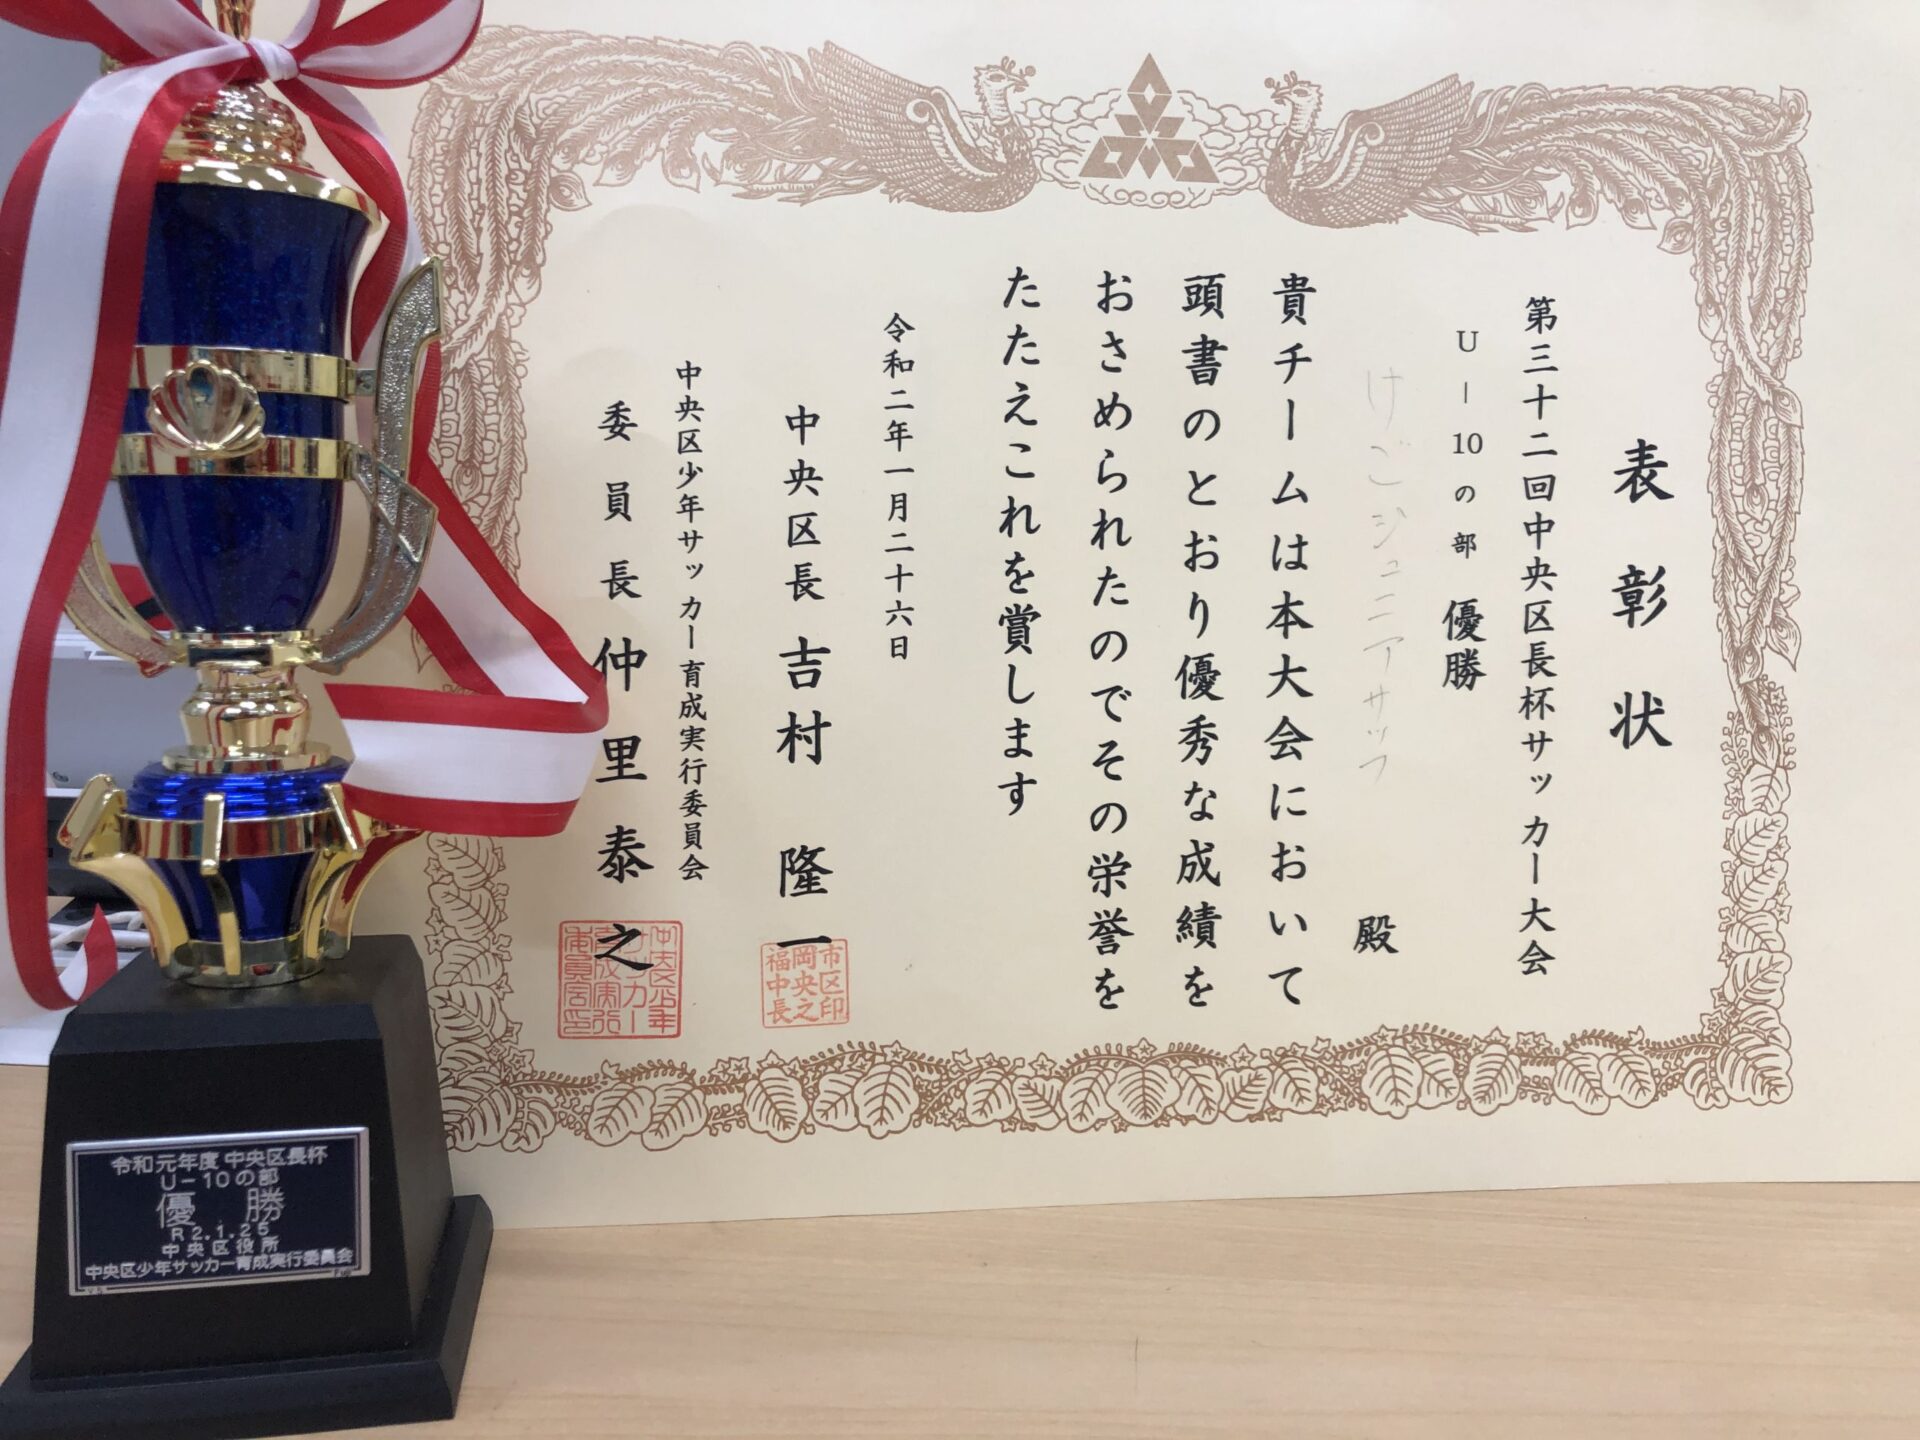 表彰状
第三十二回中央区長杯サッカー大会
U-10の部 優勝
けごジュニアサッフ 殿
貴チームは本大会において
頭書のとおり優秀な成績を
おさめられたのでその栄誉を
たたえこれを賞します
令和二年一月二十六日
中央区長 吉村 隆一
福岡市
中央区
長之印
中央区少年サッカー育成実行委員会
委員長 仲里泰之
令和元年度 中央区長杯
U-10の部
優 勝
R2.1.25
中央区役所
中央区少年サッカー育成実行委員会